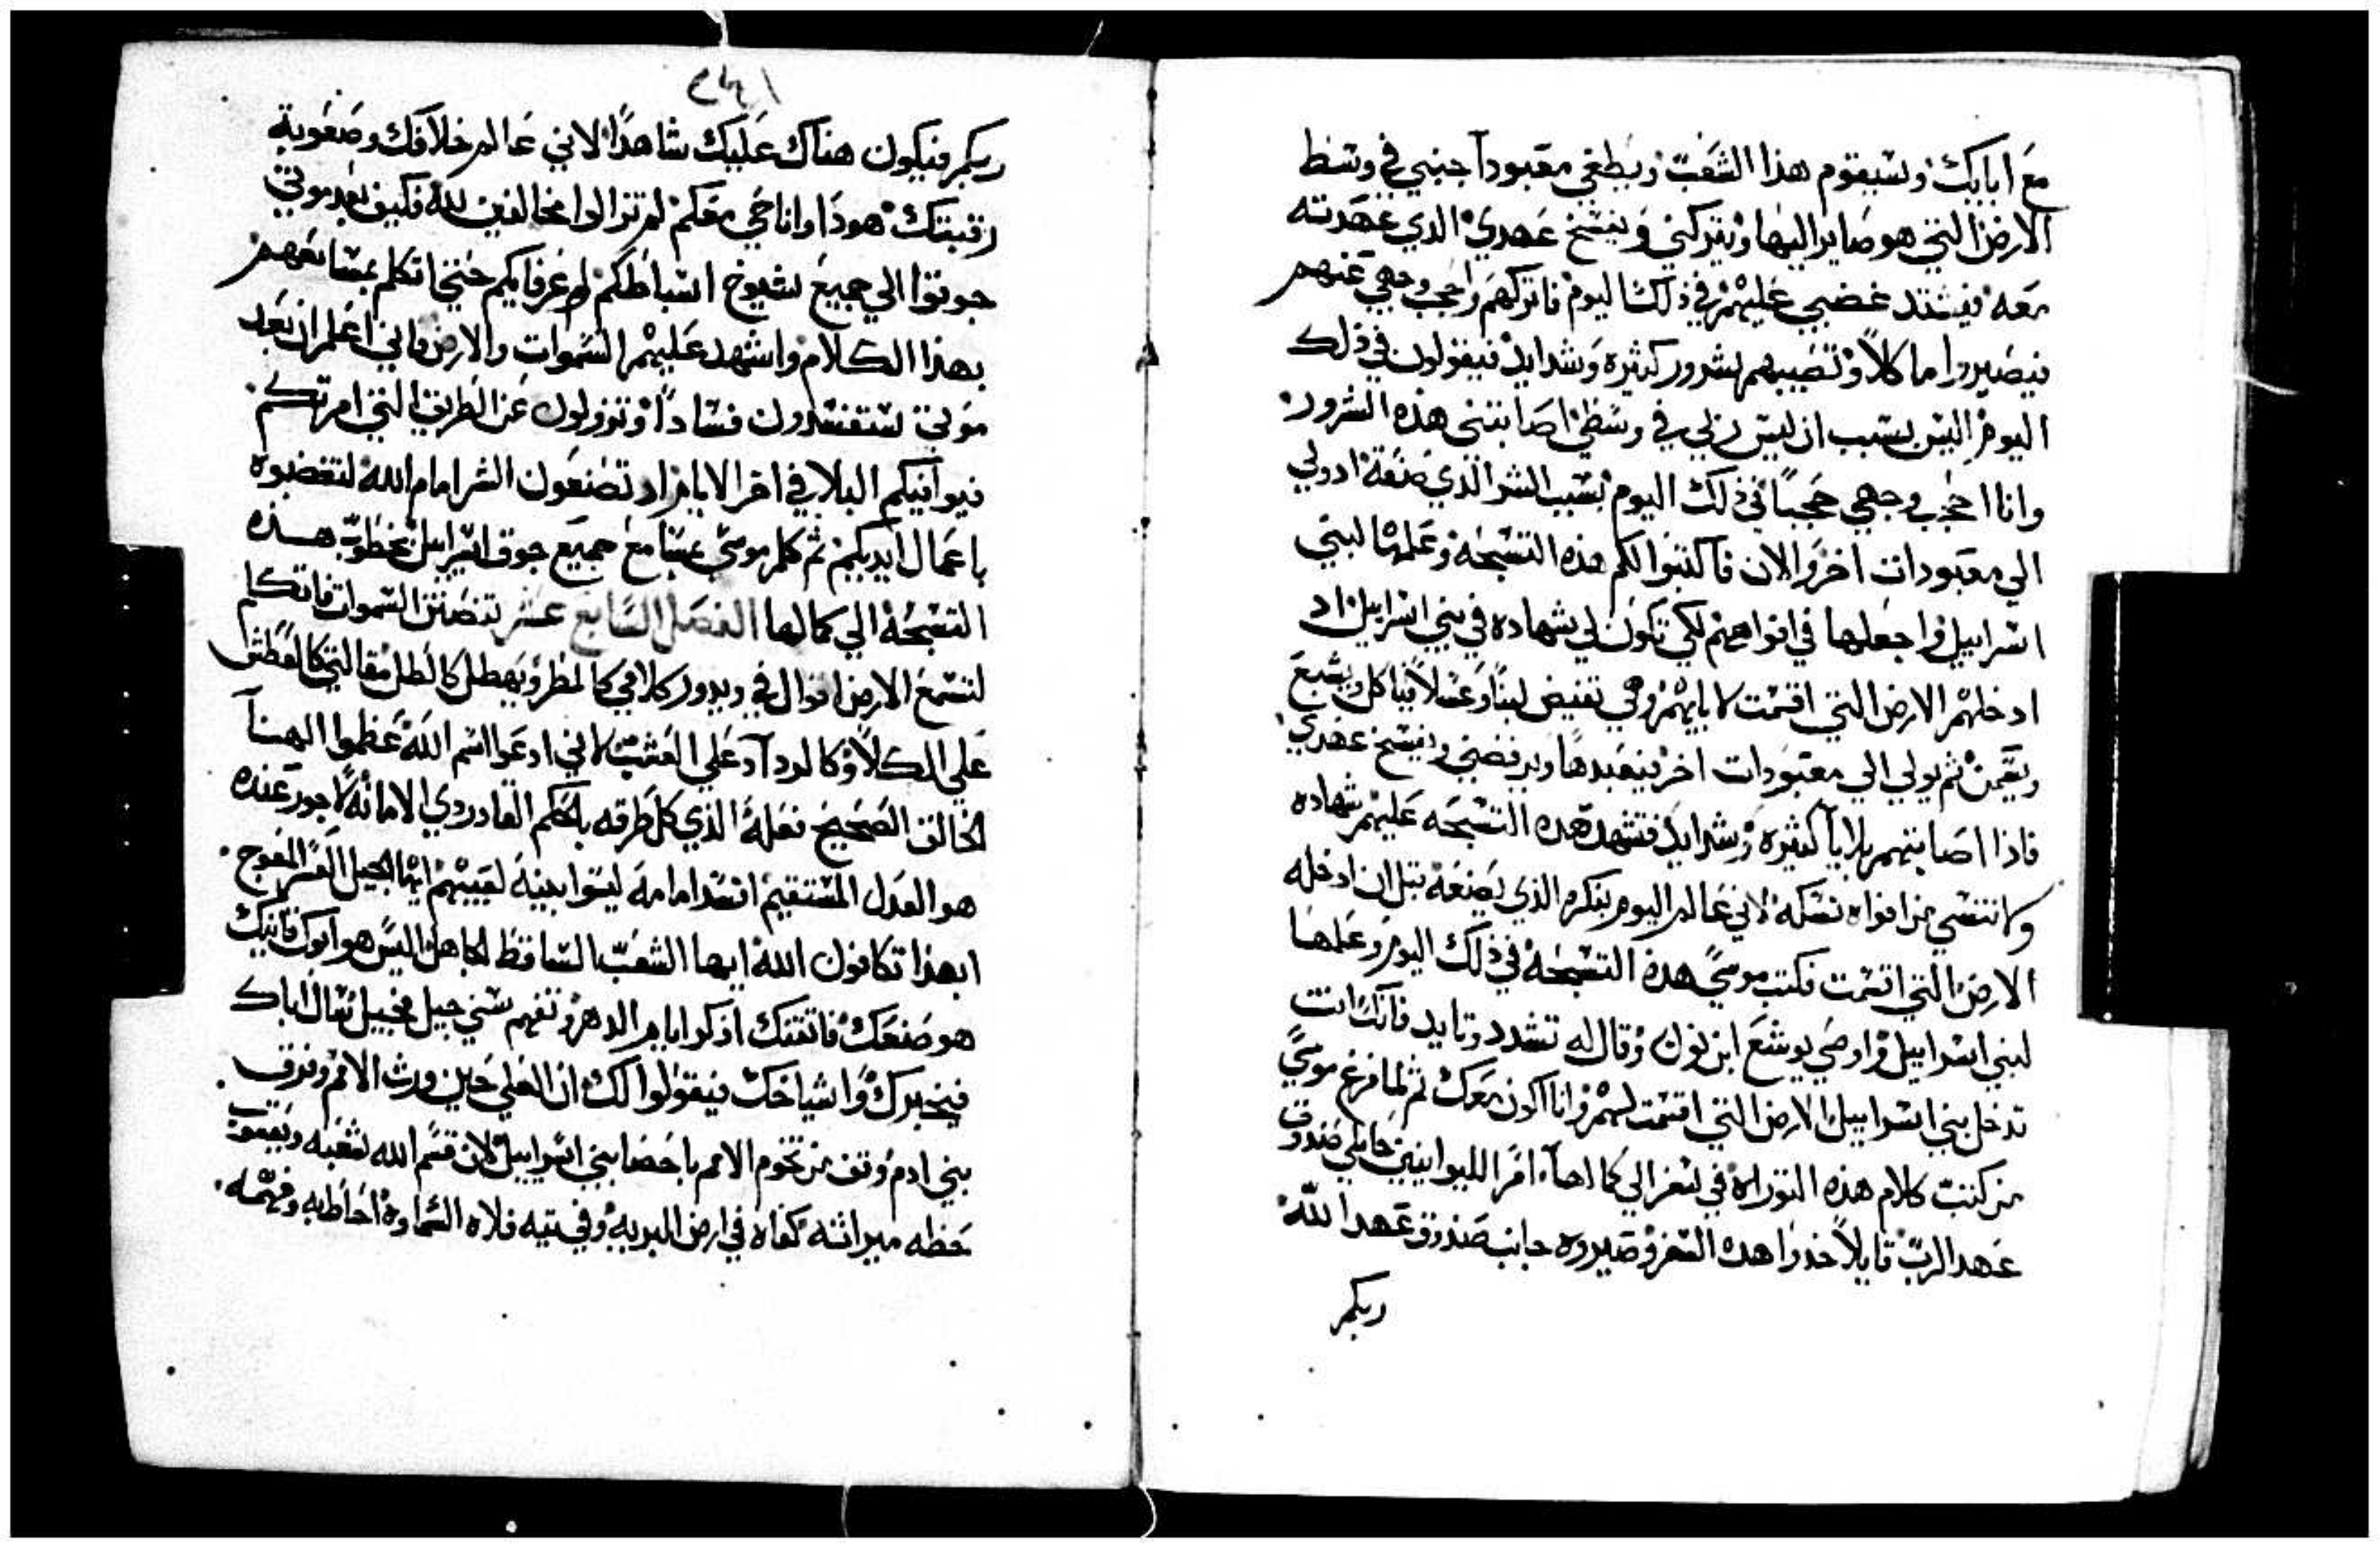 مع ابايك وسيقوم هذا الشعب ويطغي معبودا جنبي في وسط
الارض التي هو صاير اليها ويتركني ويفسخ عهدي الدي عهدته
معه فيشتد غضبي عليهم في ذلك اليوم فاتركهم واحجب وجهي عنهم
فيصيروا ماكلا وتصيبهم شرور كثيره وشدايد فيقولون في ذلك
اليوم اليس بسبب ان ليس ربي في وسطي اصابتني هذه الشرور
وانا احجب وجهي حجبا في ذلك اليوم بسبب الشر الذي صنعه اد ولي
الي معبودات اخر والان فاكتبوا لكم هذه التسبحه وعلمها لبني
اسراييل واجعلها في افواههم لكي تكون لي شهاده في بني اسراييل اد
ادخلهم الارض التي اقسمت لابايهم وهي تفيض لبنا وعسلا فياكل ويشبع
ويتمن ثم يولي الي معبودات اخر فيعبدها ويرفضني ويفسخ عهدي
فاذا اصابتهم بلايا كثيره وشدايد فتشهد هده التسبحه عليهم شهاده
ولا تنتسي من افواه نسله لاني عالم اليوم بفكرم الذي يصنعه قبل ان ادخله
الارض التي اقسمت فكتب موسي هذه التسبحه في ذلك اليوم وعلمها
لبني اسراييل واوصي يوشع ابن نون وقال له تشدد وتايد فانك انت
تدخل بني اسراييل الارض التي اقسمت لهم وانا اكون معك ثم لما فرغ موسي
من كتب كلام هذه التوراه في سفر الي كمالها امر الليوانيين حاملي صندوق
عهد الرب قايلا خدوا هده السفر وصيروه جانب صندوق عهد الله
ربكم
٢٤١
ربكم فيكون هناك عليك شاهدا لاني عالم خلافك وصعوبة
رقبتك هودا وانا حي معكم لم تزالوا مخالفين لله فكيف بعد موتي
جوقوا الي جميع شيوخ اسباطكم وعرفايكم حتي اتكلم بمسامعهم
بهذا الكلام واشهد عليهم السموات والارض فاني اعلم ان بعد
موتي ستفسدون فسادا وتزولون عن الطريق التي امرتكم
فيوافيكم البلا في اخر الايام اد تصنعون الشر امام الله لتغضبوه
باعمال ايديكم ثم كلم موسي بمسامع جميع جوق اسراييل بخطوب هذه
التسبحه الي كمالها الفصل السابع عشر تنصتن السموات فاتكلم
لتسمع الارض اقوال في ويدور كلامي كالمطر ويهطل كالطل مقالتي كالطش
علي الكلا وكالرداد علي العشب لاني ادعوا اسم الله عظموا الهنا
الخالق الصحيح فعله الذي كل طرقه بالحكم القادر دي الامانه لا جور عنده
هو العدل المستقيم افسد امامه ليسوا بنيه لعيبهم ايها الجيل العسر المعوج
ابهذا تكافون الله ايها الشعب الساقط الجاهل اليس هو ابوك قانيك
هو صنعك فاتقنتك ادكوا ايام الدهر وتفهم سني جيل فجيل سال اباك
فيخبرك واشياخك فيقولوا لك ان العلي حين ورث الامم وفرق
بني ادم وقف من تخوم الامم باحصا بني اسراييل لان قسم الله شعبه ويعقوب
حظه ميراثه كفاه في ارض البريه وفي تيه فلاه السماوه احاط به وفهمه